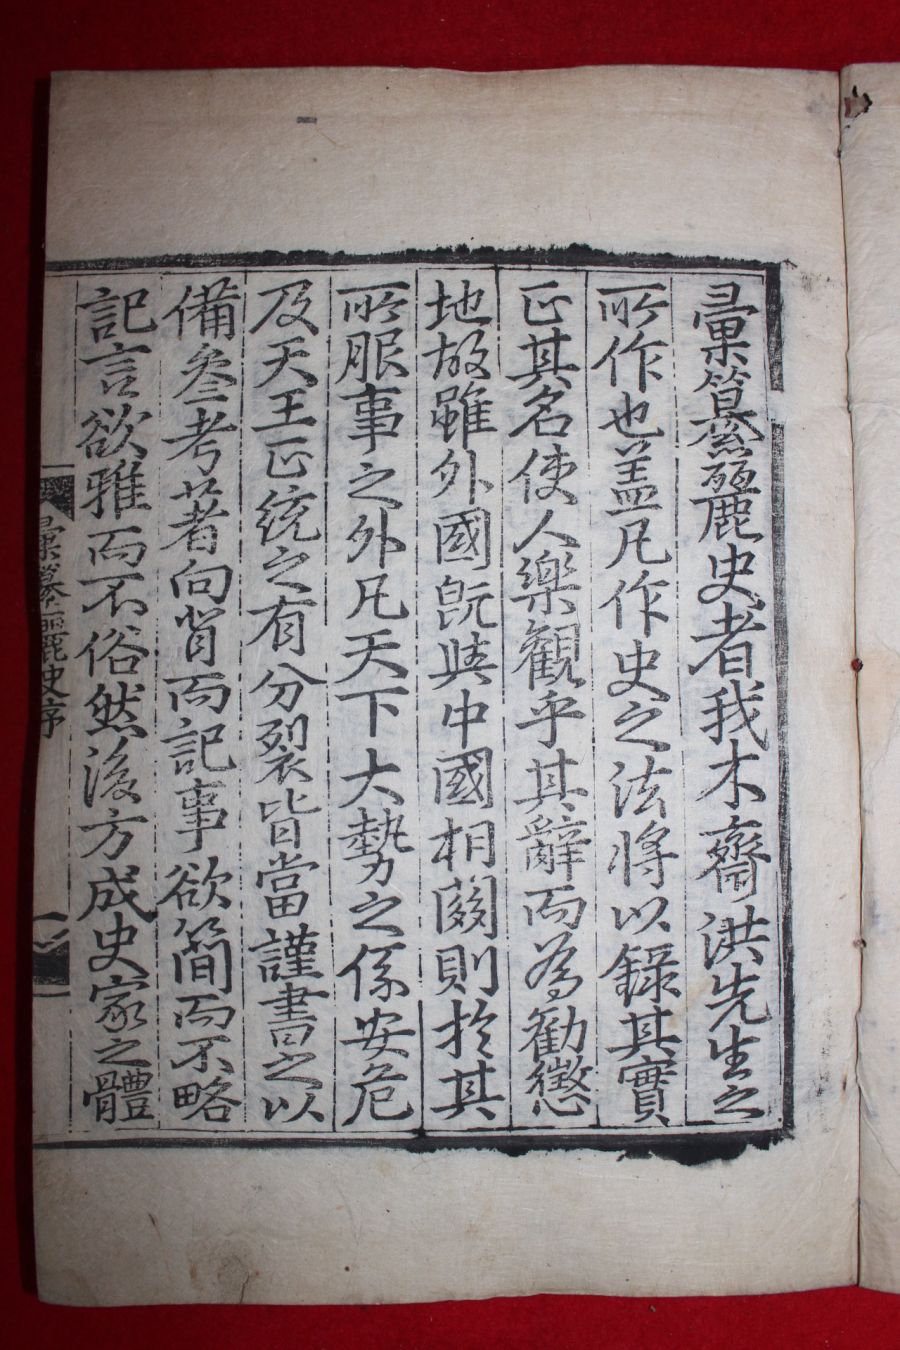 彙纂麗史者我木齋洪先生之
所作也盖凡作史之法將以錄其實
正其名使人樂觀乎其辭而為勸懲
地故雖外國旣與中國相關則於其
所服事之外凡天下大勢之係安危
及天王正統之有分裂皆當謹書之以
備叅考著向背而記事欲簡而不略
記言欲雅而不俗然後方成史家之體
彙纂麗史序
一